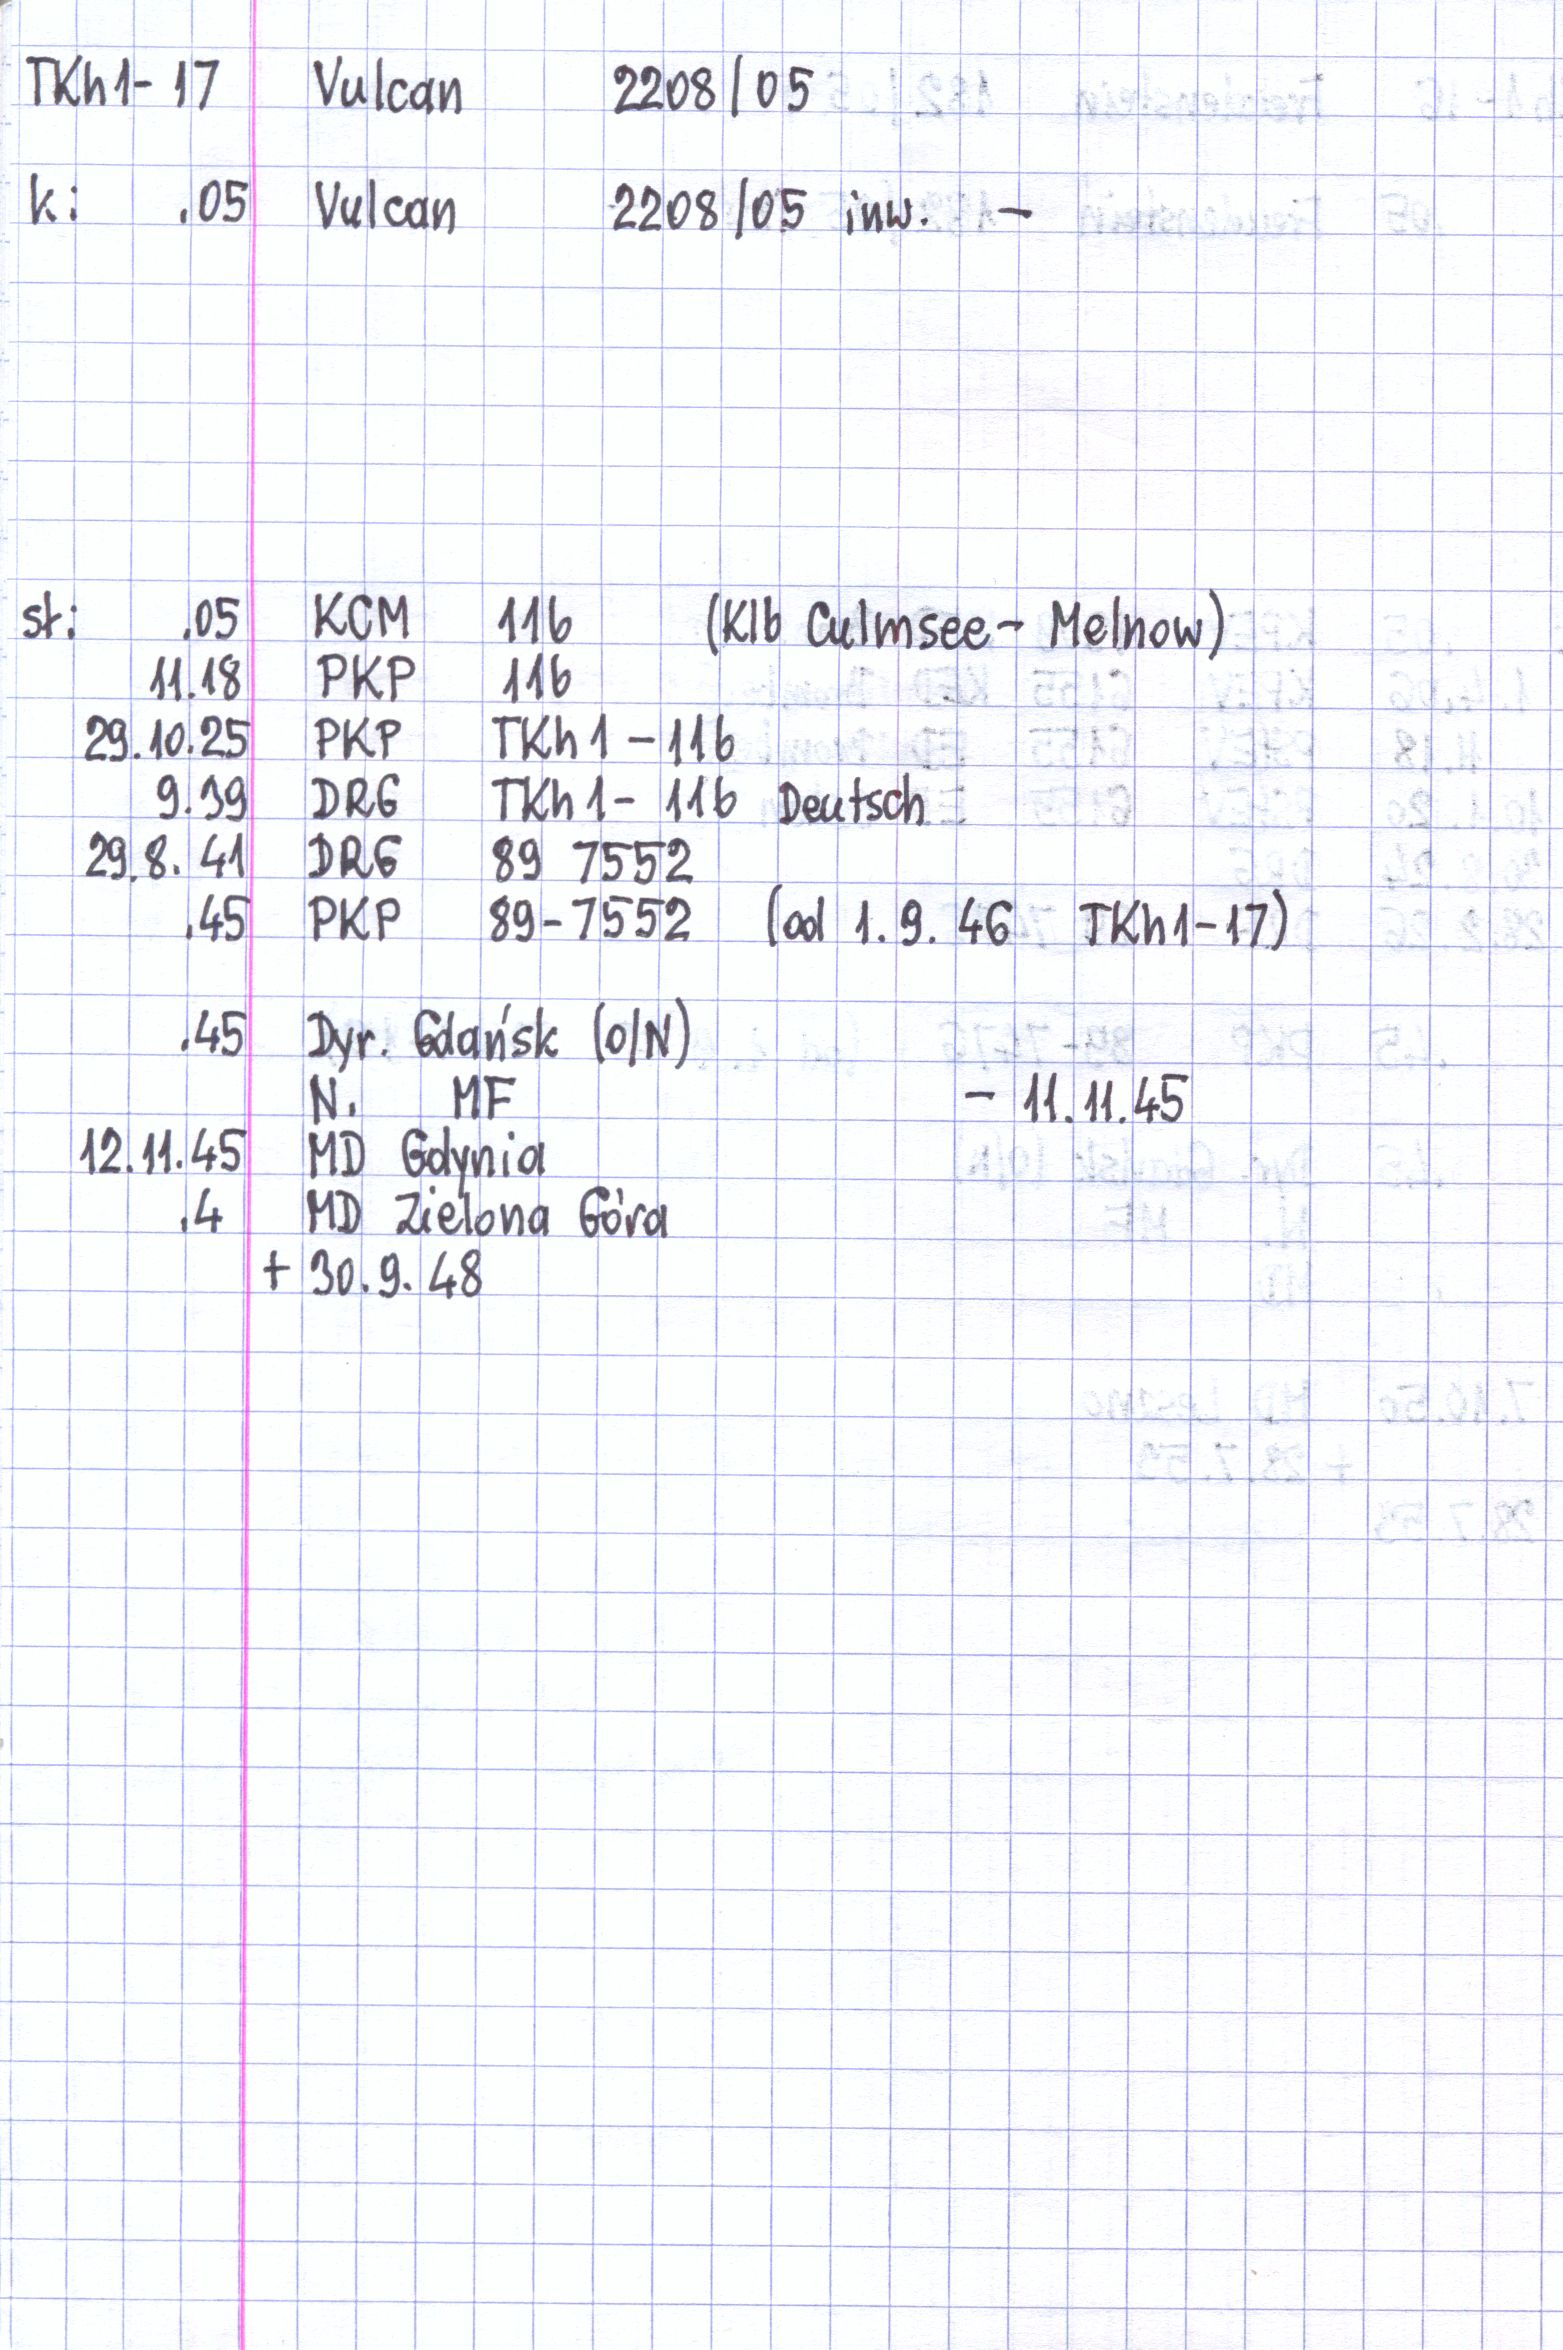 TKh1-17 Vulcan 2208/05
k: .05 Vulcan 2208/05 inw. -
st: .05 KCM 116 (Klb Culmsee- Melnow)
11.18 PKP 116
29.10.25 PKP TKh1-116
9.39 DRG TKh1-116 Deutsch
29.8.41 DRG 89 7552
.45 PKP 89-7552 (od 1.9.46 TKh1-17)
.45 Dyr. Gdańsk (O/N)
N. MF - 11.11.45
12.11.45 MD Gdynia
.4 MD Zielona Góra
+ 30.9.48